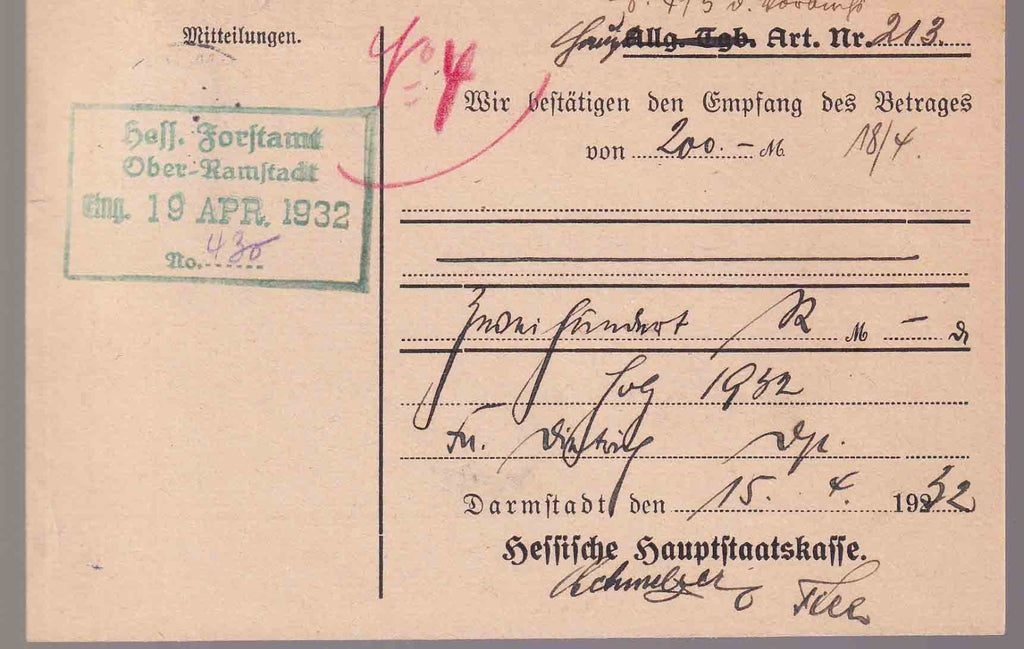 Mitteilungen.
Haupt Allg. Tgb. Art. Nr. 213.
Wir bestätigen den Empfang des Betrages
von 200.- M. 18/4.
Hess. Forstamt
Ober-Ramstadt
Eing. 19 APR. 1932
No. 430
Zweihundert R M - ₰
Holz 1932
Fr. Dietrich
Darmstadt, den 15. 4. 1932
Hessische Hauptstaatskasse.